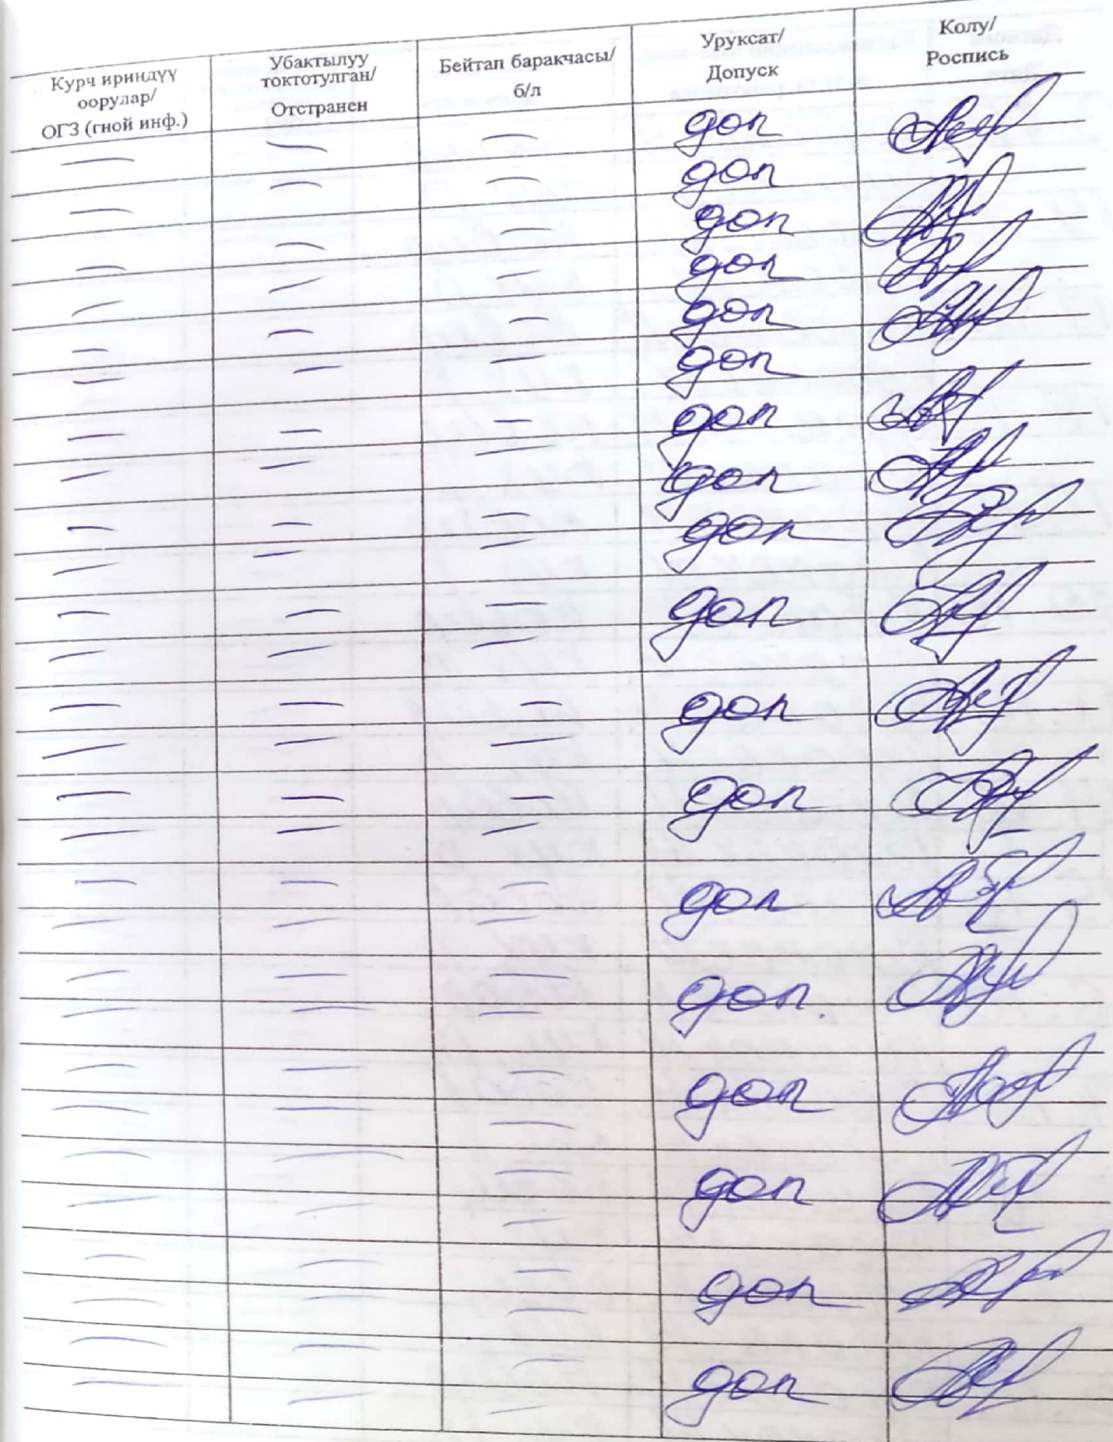 Курч ириндүү
оорулар/
ОГЗ (гной инф.)
Убактылуу
токтотулган/
Отстранен
Бейтап баракчасы/
б/л
Уруксат/
Допуск
Колу/
Роспись
— — — доп
— — — доп
— — — доп
— — — доп
— — — доп
— — — доп
— — — доп
— — — доп
— — — доп
— — — доп
— — — доп
— — — доп
— — — доп
— — — доп.
— — — доп
— — — доп
— — — доп
— — — доп